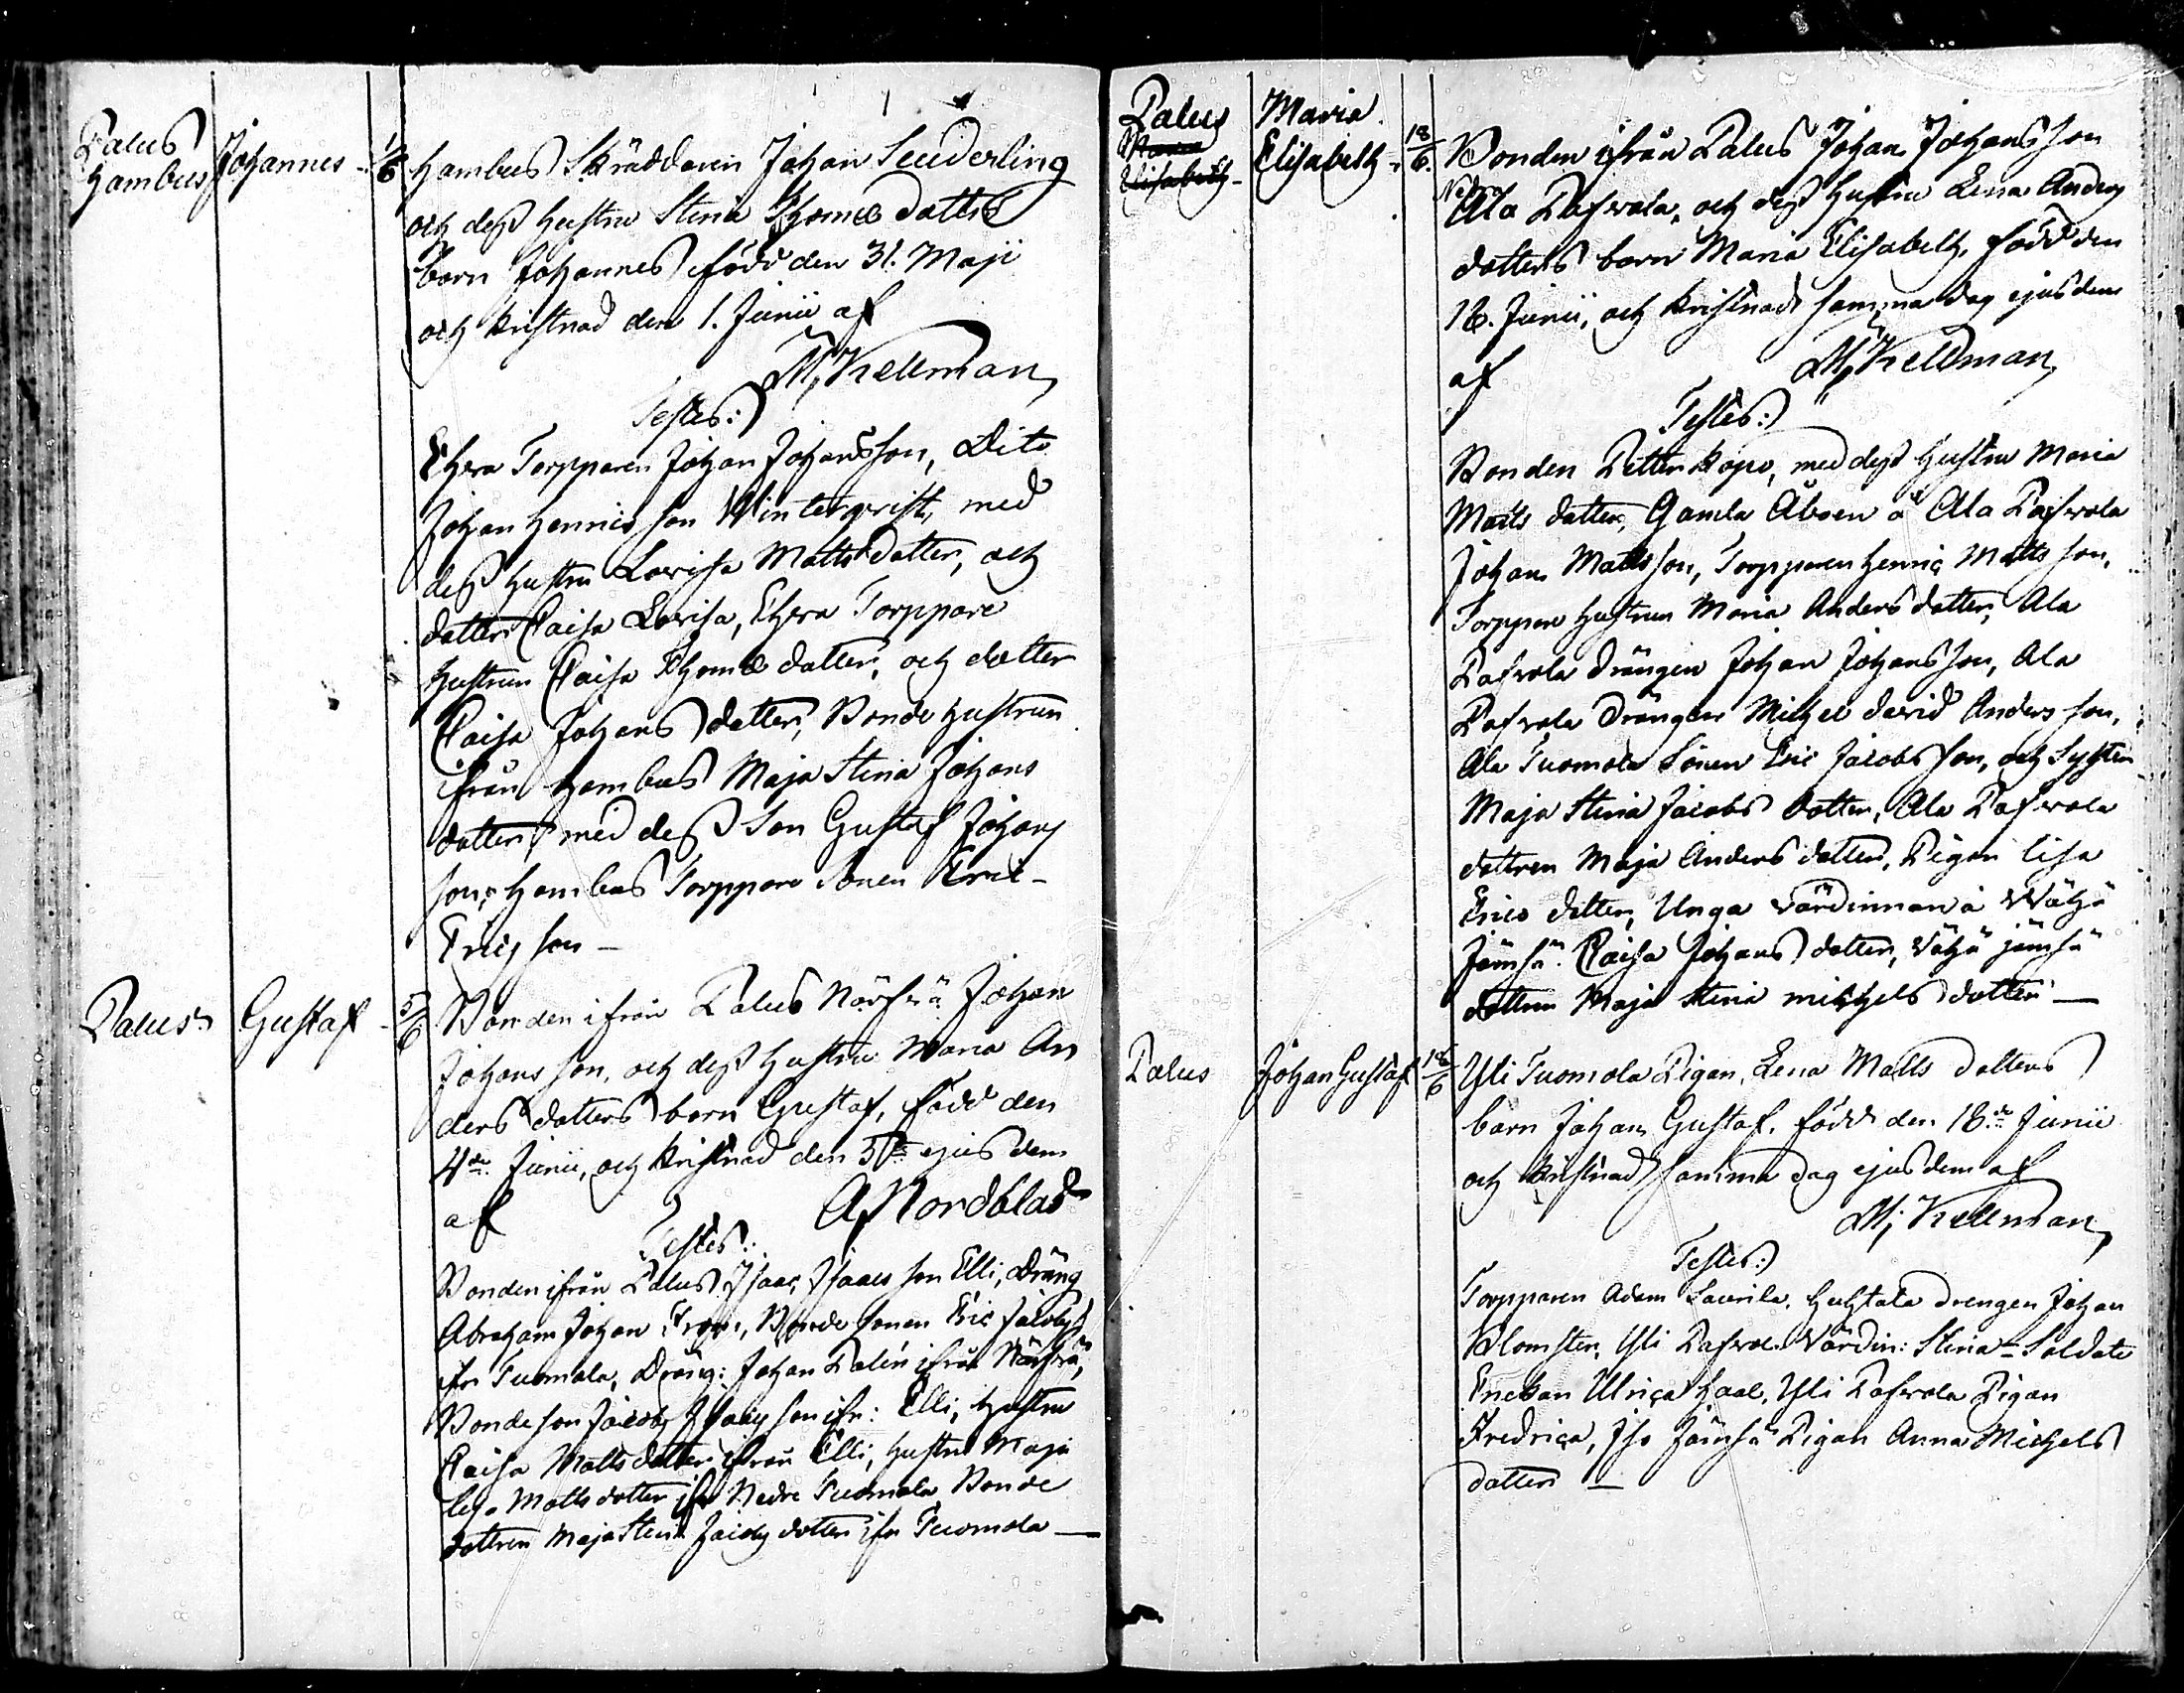 Palus
Hambus
Johannes
1/6
Hambus Skräddaren Johan Seuderling
och dess hustru Stina Thomæ dotters
barn Johannes född den 31. Maji
och kristnad den 1. Junii af
M. Kellman
Testes:
Johan Johansson, Dito
Johan Henricsson Winterqvist, med
dess hustru Lovisa Mattsdotter, och
dotter Caisa Lovisa, Torppare
hustrun Caisa Thomæ dotter, och dotter
Caisa Johans dotter, Bonde hustrun
ifrån Hambus Maja Stina Johans
dotter, med dess Son Gustaf Johans
son, Hambus Torppare Sonen Eric
Erics son —
Palus
Gustaf
5/6
Bonden ifrån Palus Närfvä Johan
Johans son, och dess hustru Maria An
ders dotters barn Gustaf, född den
4de Junii, och kristnad den 5te ejusdem
af
A Nordblad
Testes:
Bonden ifrån Palus Isaac Isaacs son Elli, Dräng
Abraham Johan Bonde sonen Eric Jacobs
ifr Tuomola, Dräng: Johan Palén ifrån Närfvä,
Bonde son Jacob Isaacs son ifr: Elli, hustru
Caisa Matts dotter ifrån Elli, hustru Maja
Lisa Matts dotter ifr Nedre Tuomola Bonde
dottren Maja Stina Jacobs dotter ifr Tuomola —
Palus
Maria
Elisabeth
Maria
Elisabeth
18/6.
Bonden ifrån Palus Johan Johansson
Ala Pafvola, och dess hustru Lena Anders
dotters barn Maria Elisabeth, född den
18. Junii, och kristnad samma dag ejusdem
af
M. Kellman
Testes:
Bonden Petter Kopo, med dess hustru Maria
Matts dotter, Gamla Åboen å Ala Pafvola
Johan Mattsson, Torpparen Henric Matts son,
Torppare hustrun Maria Anders dotter, Ala
Pafvola drängen Johan Johansson, Ala
Pafvola Drängen Michel David Anders son,
Ala Tuomola Sonen Eric Jacobs son, och Syster
Maja Stina Jacobs dotter, Ala Pafvola
dottren Maja Anders dotter, Pigan Lisa
Erics dotter, Unga värdinnan å Wähä
Jämsä Caisa Johans dotter, Vähä jämsä
dottren Maja Stina Michels dotter —
Palus
Johan Gustaf
18/6
Yli Tuomola Pigan, Lena Matts dotters
barn Johan Gustaf, född den 18de Junii
och kristnad samma dag ejusdem af
M. Kellman
Testes:
Torpparen Adam Laurila, Huhtala drengen Johan
Blomster, Yli Pafvol. Värdin: Stina Soldate
Enckan Ulrica Haal, Yli Pafvola Pigan
Fredrica, Iso Jämsä Pigan Anna Michels
dotter —